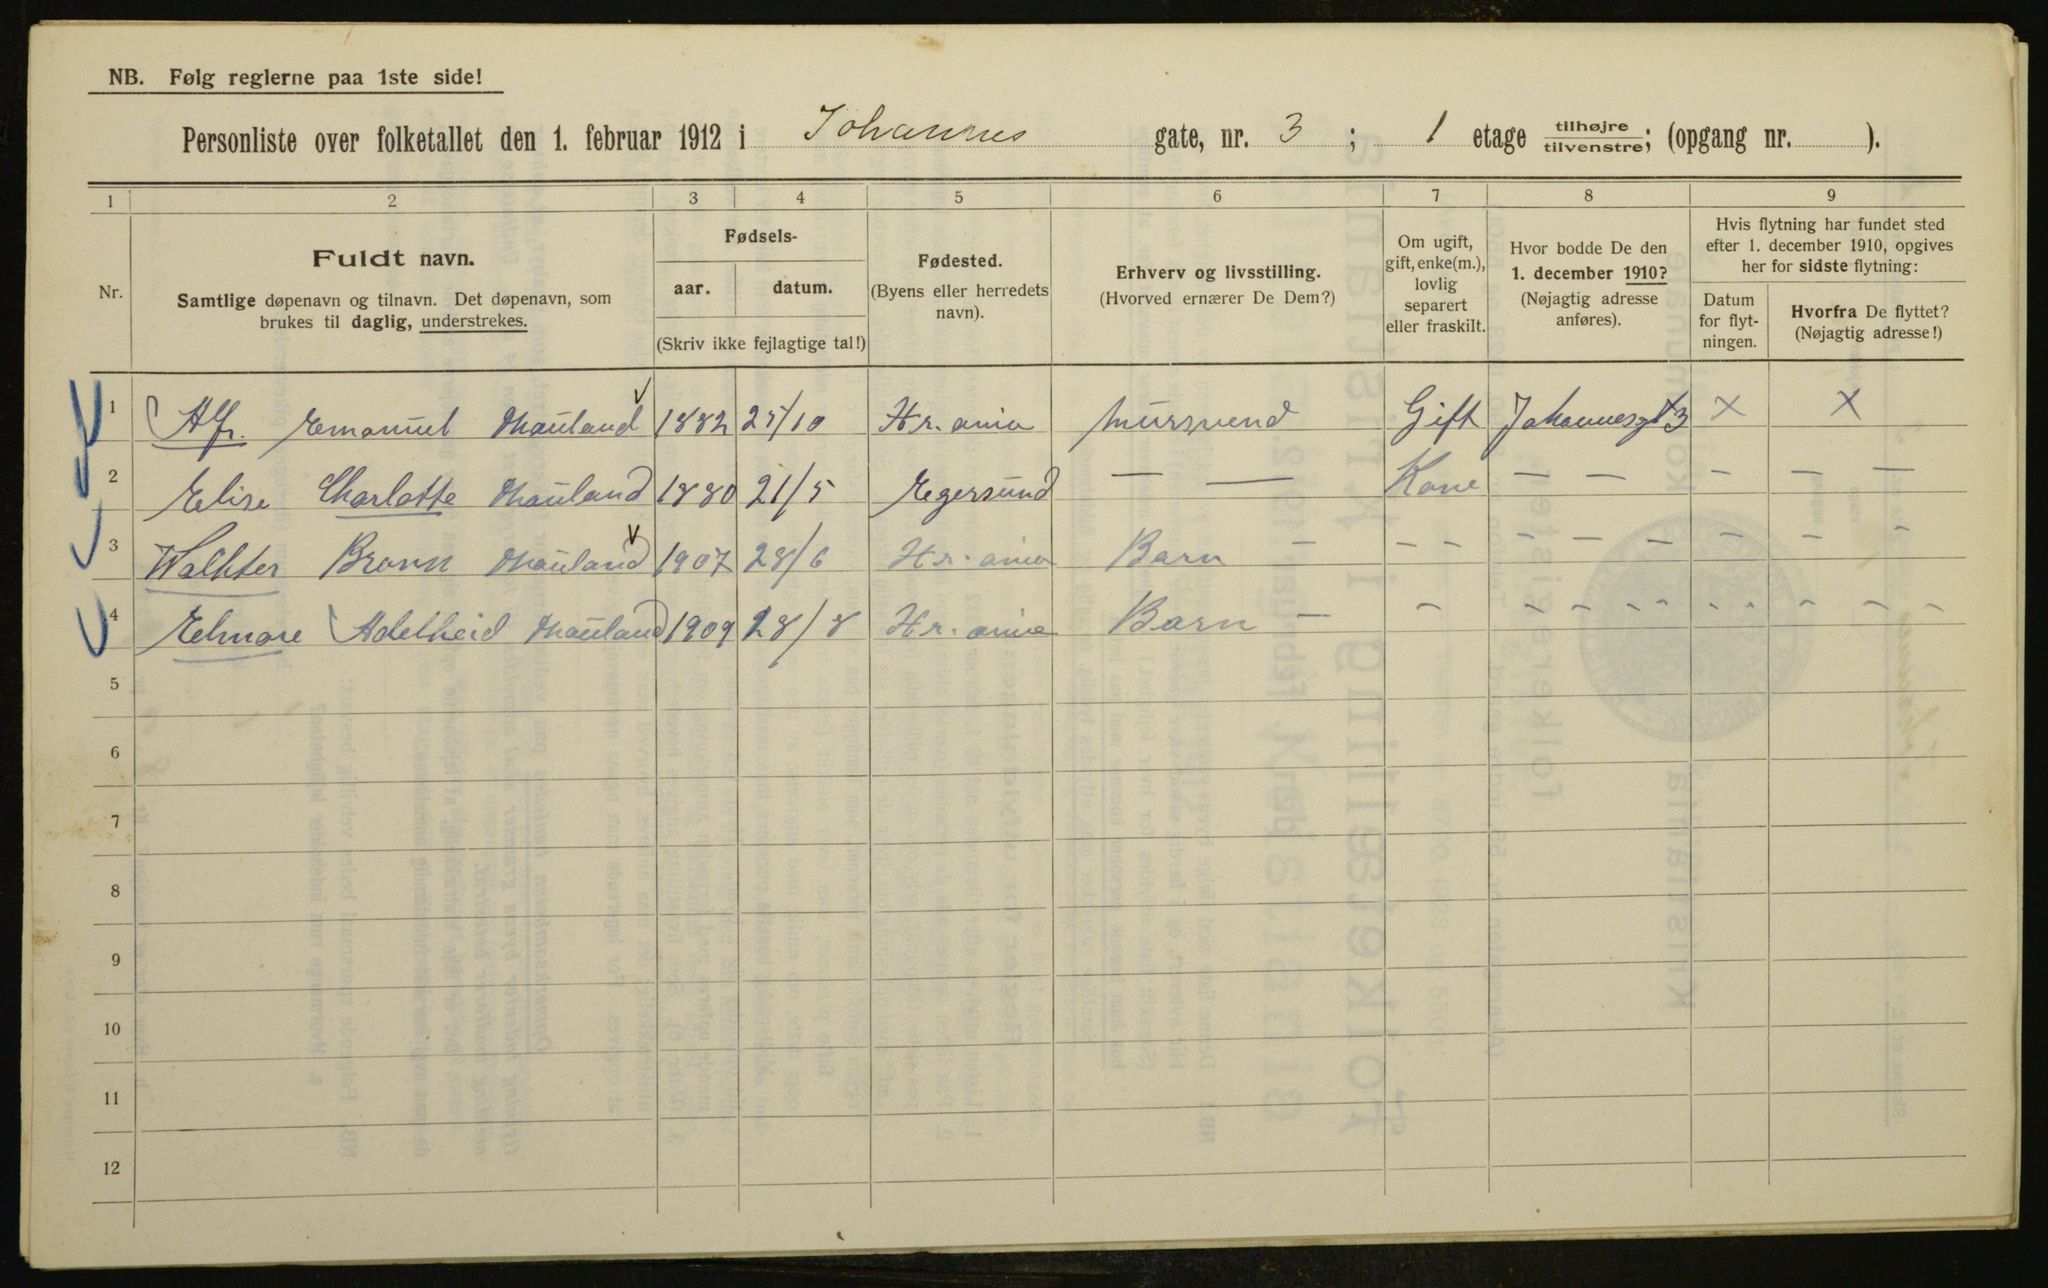 NB. Følg reglerne paa 1ste side!
Personliste over folketallet den 1. februar 1912 i Johannes gate, nr. 3 ; 1 etage tilhøjre tilvenstre; (opgang nr. ).
1 2 3 4 5 6 7 8 9
Nr.
Fuldt navn.
Samtlige døpenavn og tilnavn. Det døpenavn, som
brukes til daglig, understrekes.
Fødsels-
aar. datum.
(Skriv ikke fejlagtige tal!)
Fødested.
(Byens eller herredets
navn).
Erhverv og livsstilling.
(Hvorved ernærer De Dem?)
Om ugift,
gift, enke(m.),
lovlig
separert
eller fraskilt.
Hvor bodde De den
1. december 1910?
(Nøjagtig adresse
anføres).
Hvis flytning har fundet sted
efter 1. december 1910, opgives
her for sidste flytning:
Datum
for flyt-
ningen.
Hvorfra De flyttet?
(Nøjagtig adresse!)
1 Alfr. Emanuel Mauland 1882 25/10 Kr. ania Mursvend Gift Johannesgt 3 X X
2 Elise Charlotte Mauland 1880 21/5 Egersund — — Kone — — — — —
3 Walhter Bronn Mauland 1907 28/6 Kr. ania Barn - - - - - - - - -
4 Elmore Adelheid Mauland 1909 28/8 Kr. ania Barn - - - - - - - - - - -
5
6
7
8
9
10
11
12